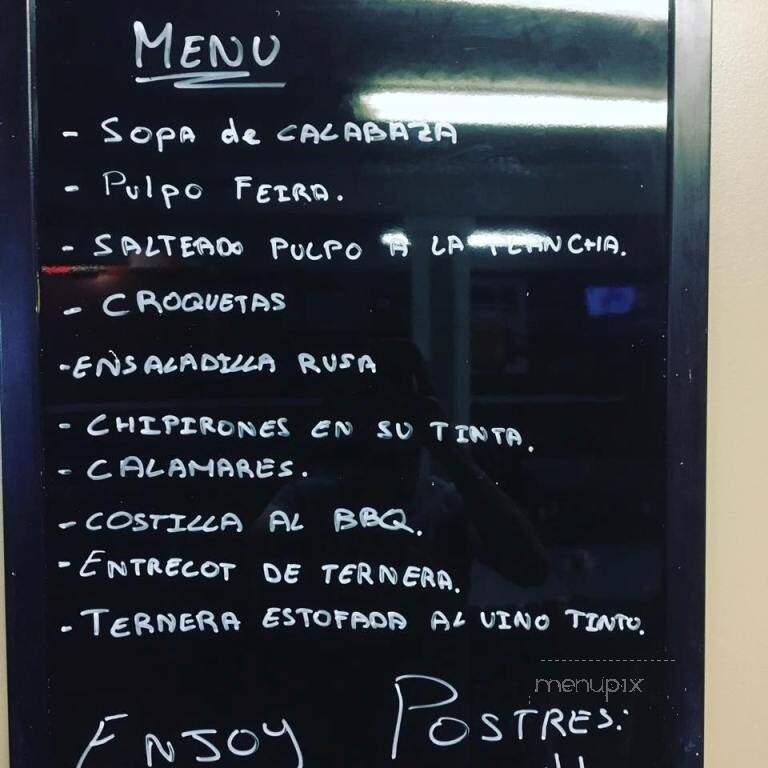 MENU
- SOPA de CALABAZA
- Pulpo FEIRA.
- SALTEADO PULPO A LA PLANCHA.
- CROQUETAS
- ENSALADILLA RUSA
- CHIPIRONES EN SU TINTA.
- CALAMARES.
- COSTILLA AL BBQ.
- ENTRECOT DE TERNERA.
- TERNERA ESTOFADA AL VINO TINTO.
menupix
ENJOY POSTRES: